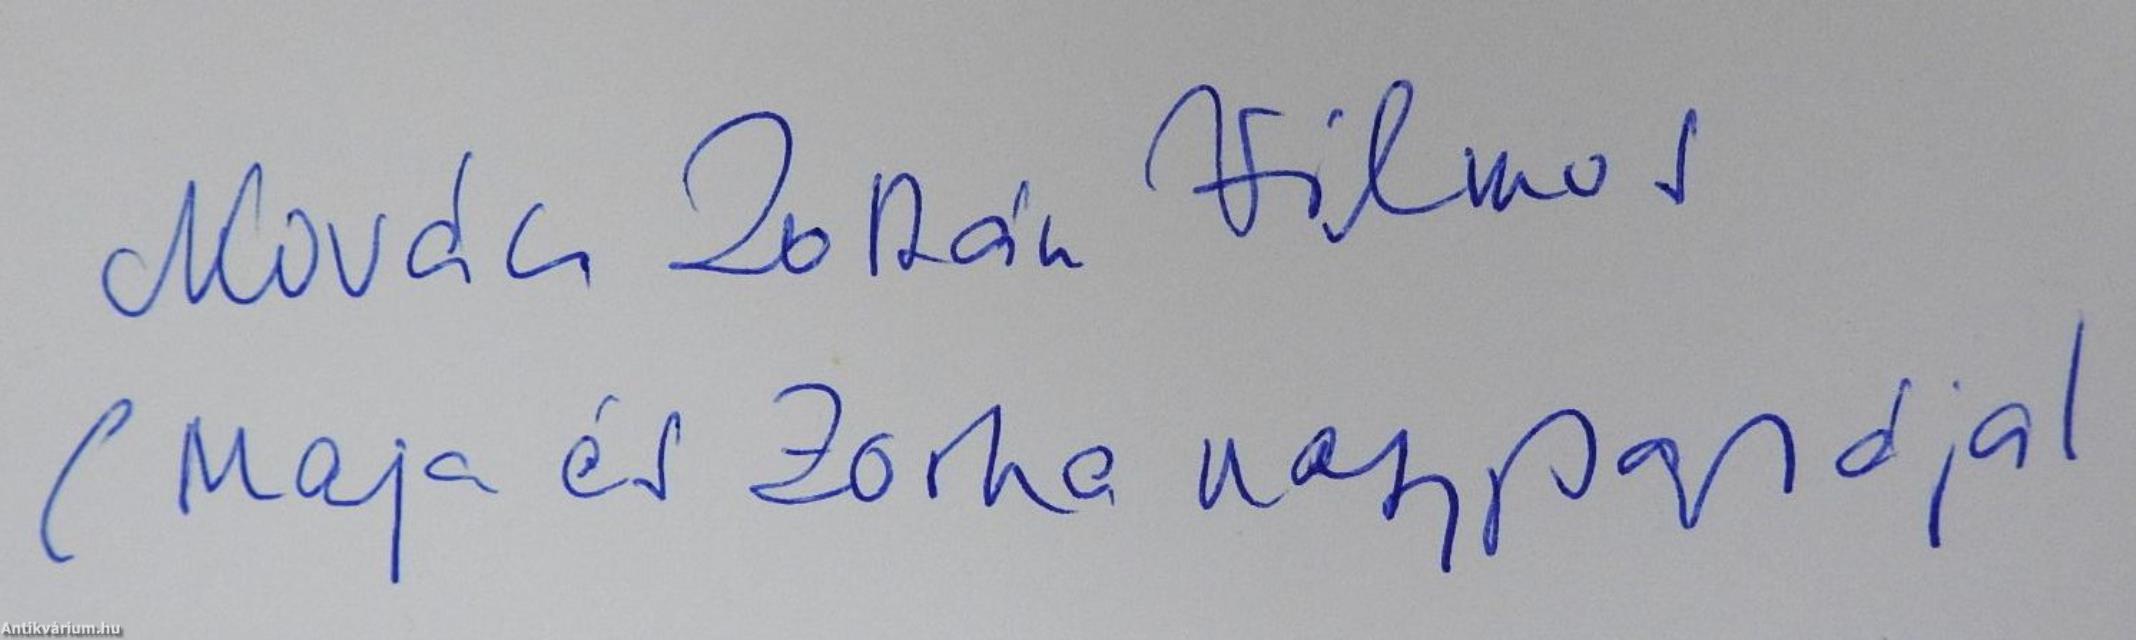 Novák Zoltán Vilmos
(Maja és Zorka nagypapája)
Antikvárium.hu